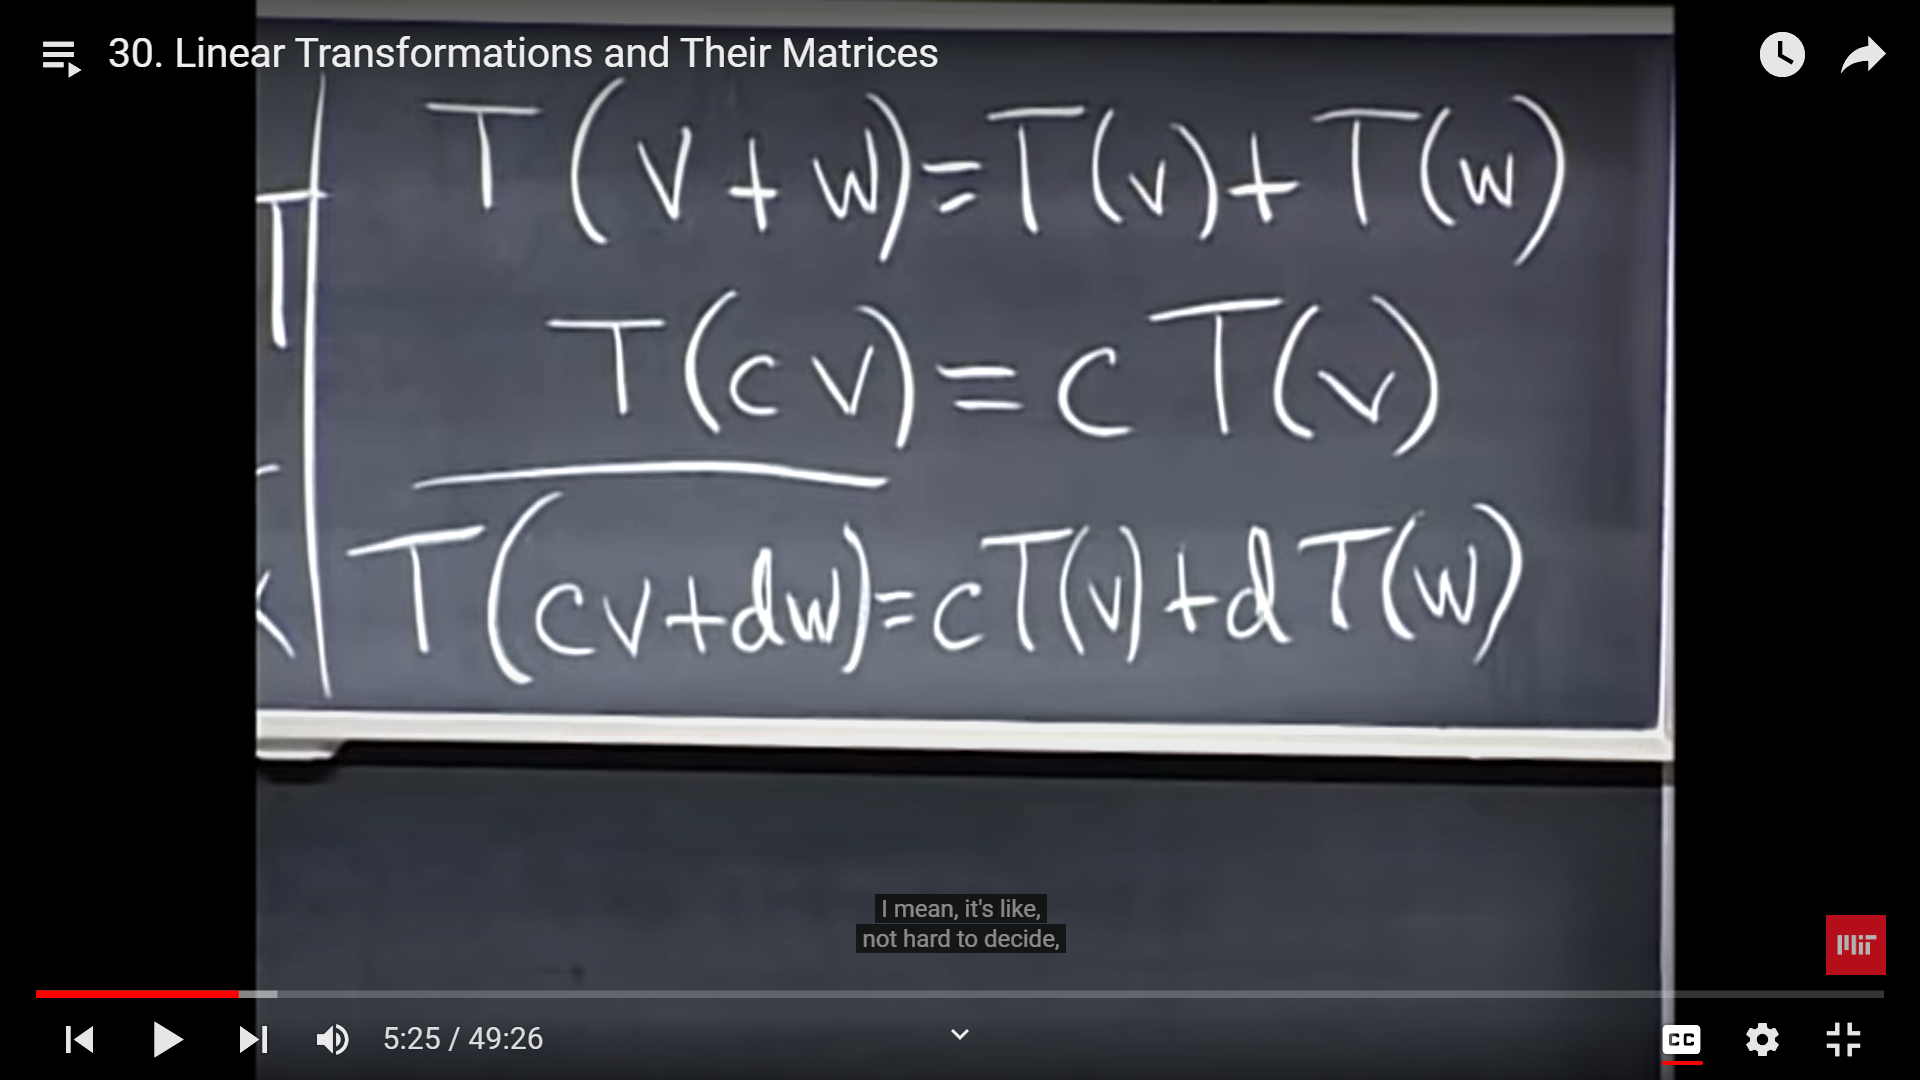 30. Linear Transformations and Their Matrices
T(v+w)=T(v)+T(w)
T
T(cv)=cT(v)
T(cv+dw)=cT(v)+dT(w)
I mean, it's like,
not hard to decide,
MIT
5:25 / 49:26
CC